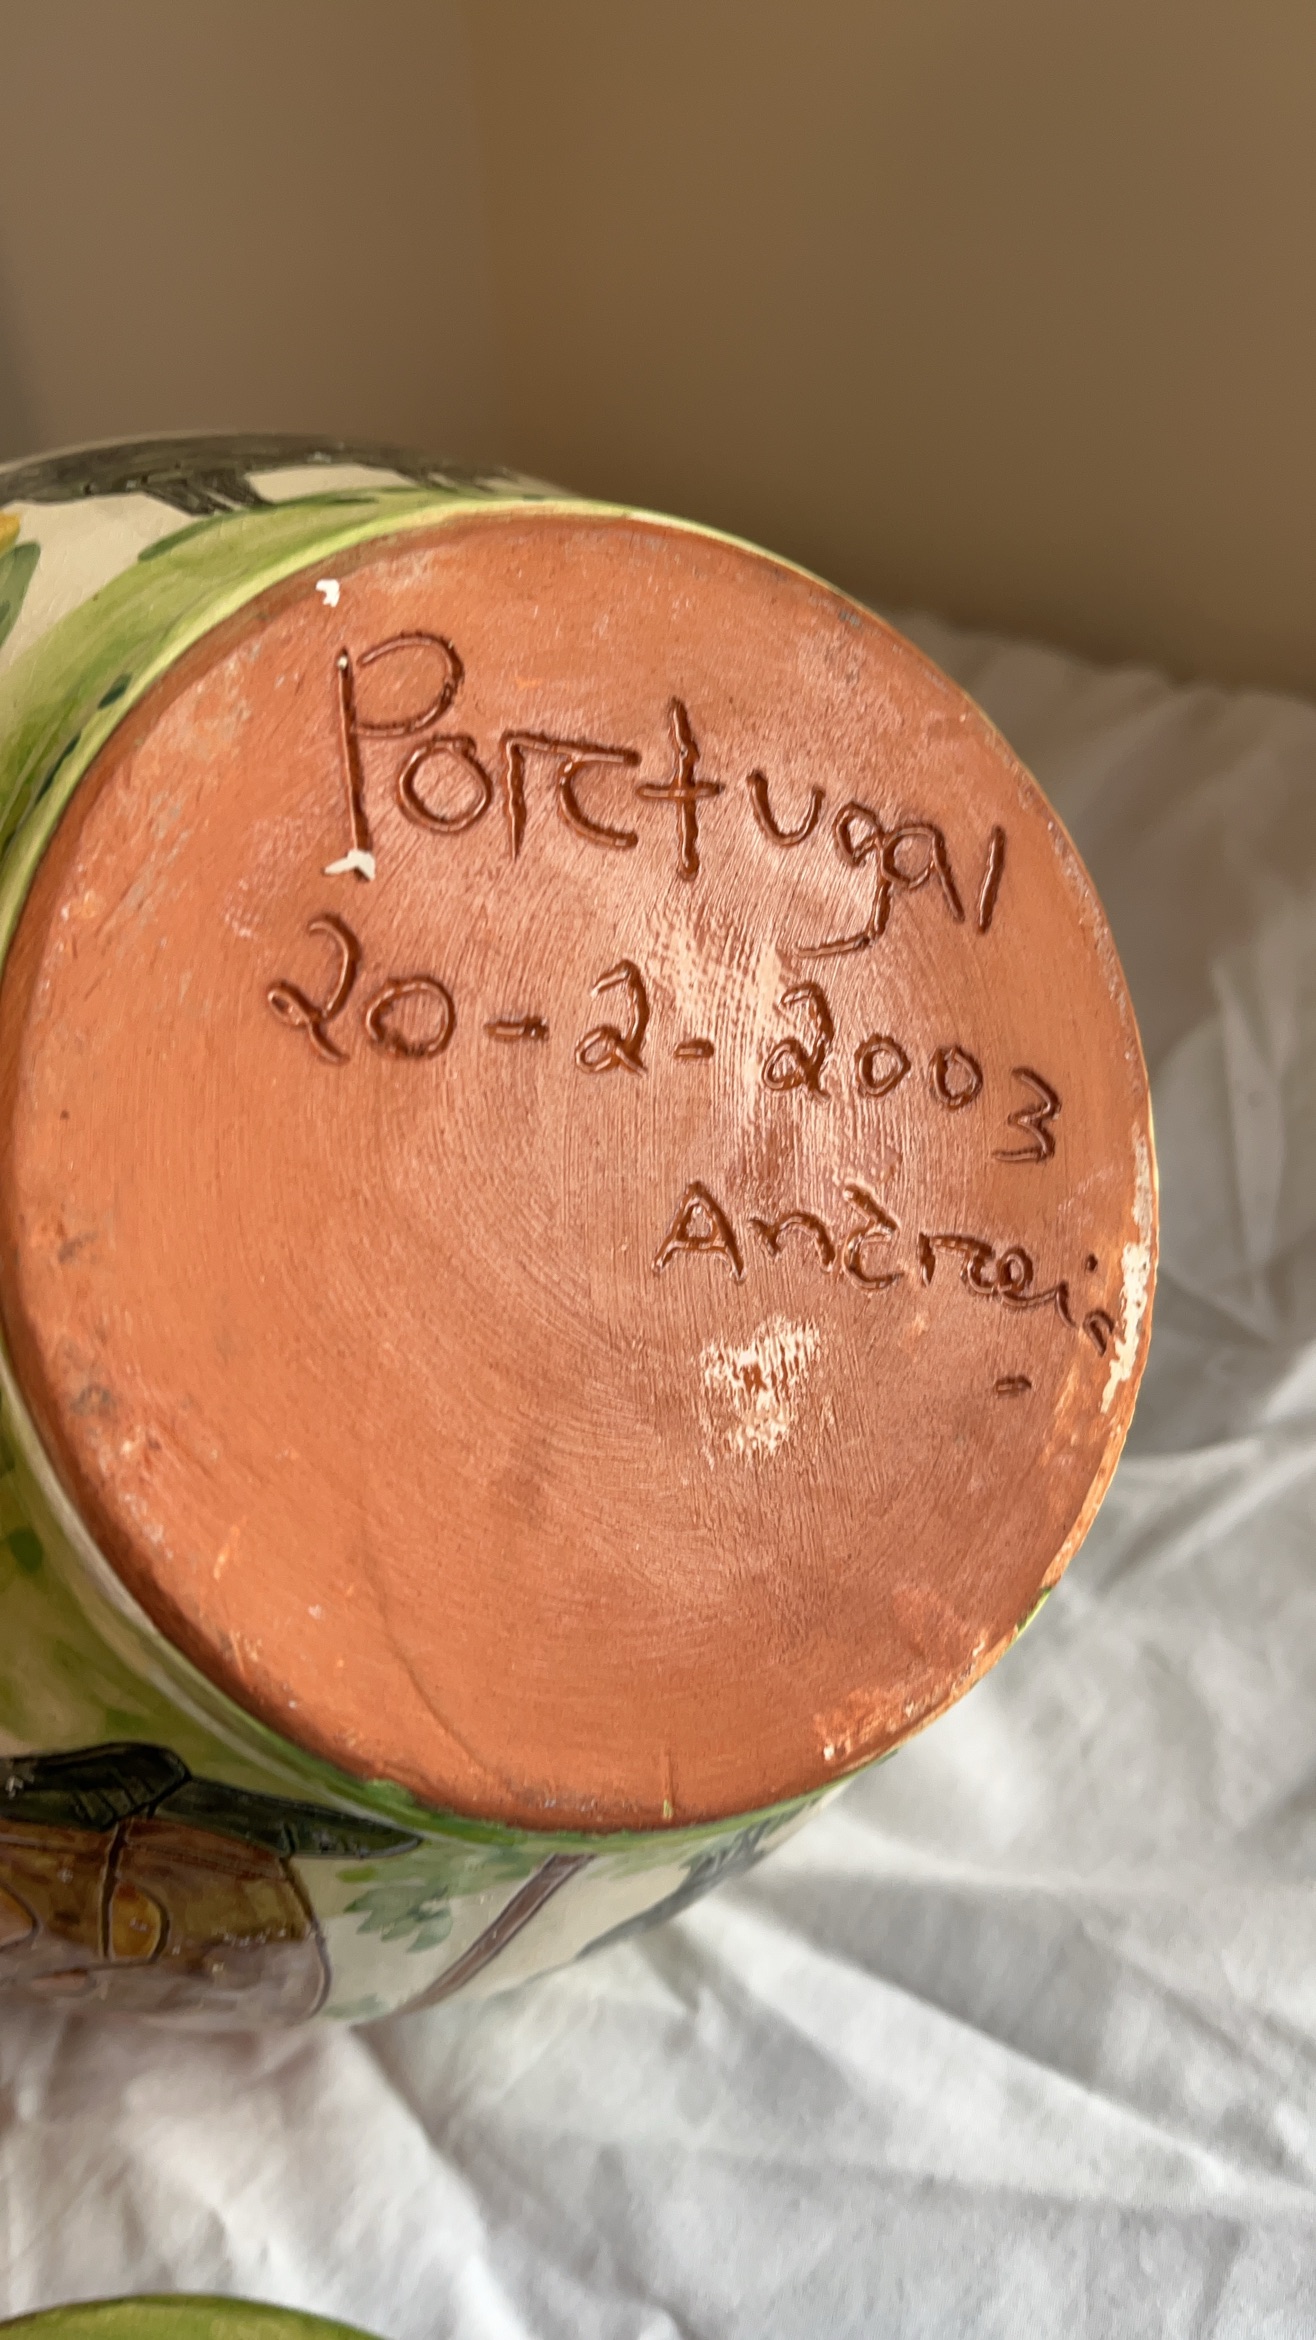 Portugal
20-2-2003
Andreia
-